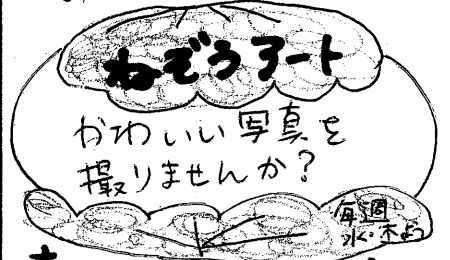 ねぞうアート
かわいい写真を
撮りませんか?
毎週
水・木よう